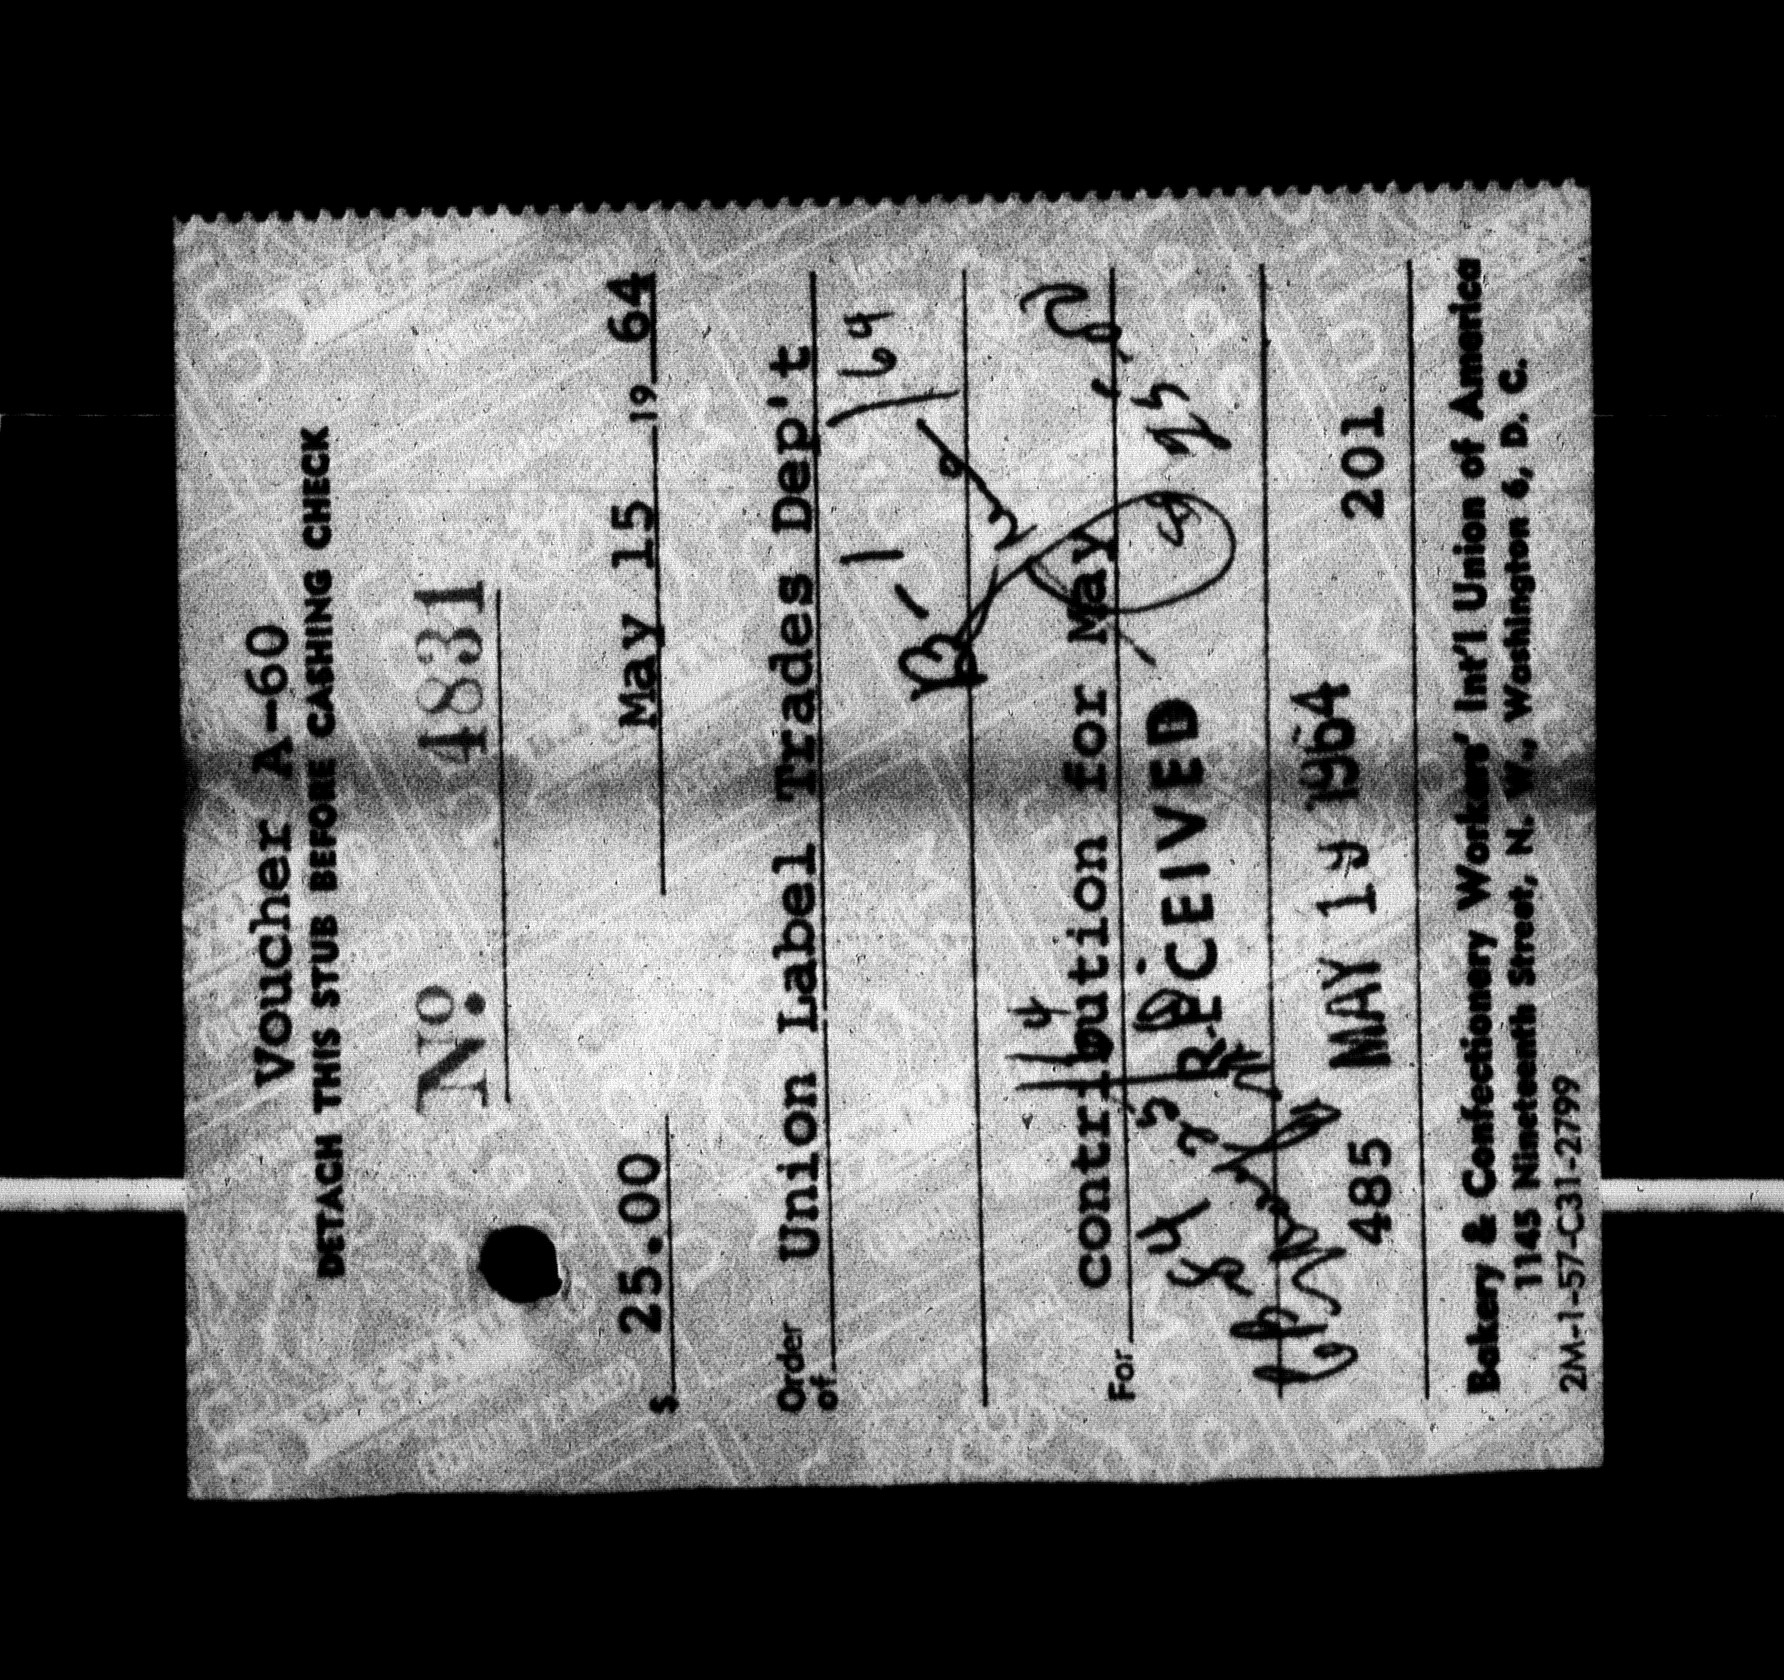 Voucher A-60
DETACH THIS STUB BEFORE CASHING CHECK
No. 4831
$ 25.00 May 15 19 64
Order of Union Label Trades Dep't
B-1 /64
114
For contribution for May
RECEIVED
MAY 19 1964
485 201
Bakery & Confectionery Workers' Int'l Union of America
1145 Nineteenth Street, N. W., Washington 6, D. C.
2M-1-57-C31-2799